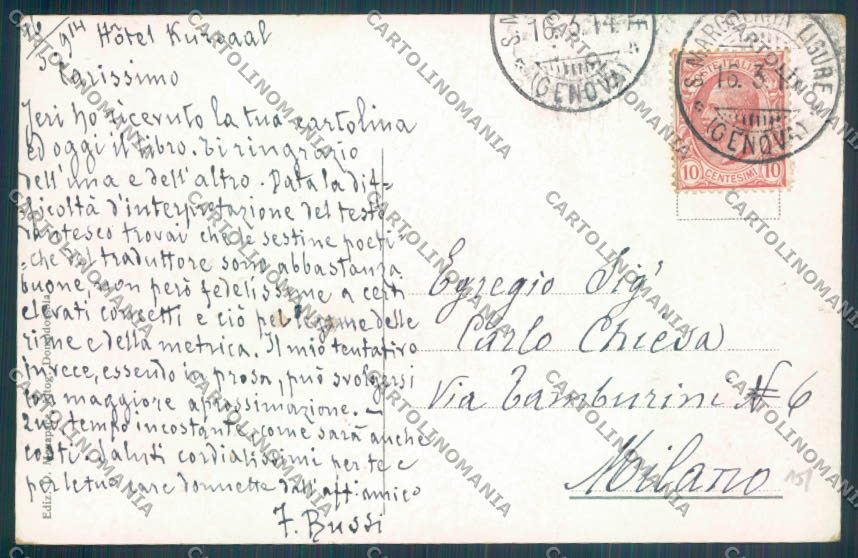 914 Hôtel Kursaal
Carissimo
Jeri ho ricevuto la tua cartolina
ed oggi il libro. Ti ringrazio
dell'una e dell'altro. Data la dif-
ficoltà d'interpretazione del testo
dantesco trovai che le sestine poeti-
-che del traduttore sono abbastanza
buone, non però fedelissime a certi
elevati concetti e ciò pel legame delle
rime e della metrica. Il mio tentativo
invece, essendo in prosa, può svolgersi
con maggiore aprossimazione. —
Qui tempo incostante come sarà anche
costì. Saluti cordialissimi per te e
per le tue care donnette dall'aff. amico
F. Bussi
Egregio Sigr
Carlo Chiesa
Via Tamburini № 6
Milano
151
S. MARGHERITA LIGURE
16.3.14
(GENOVA)
POSTE ITALIANE
10 CENTESIMI 10
CARTOLINOMANIA